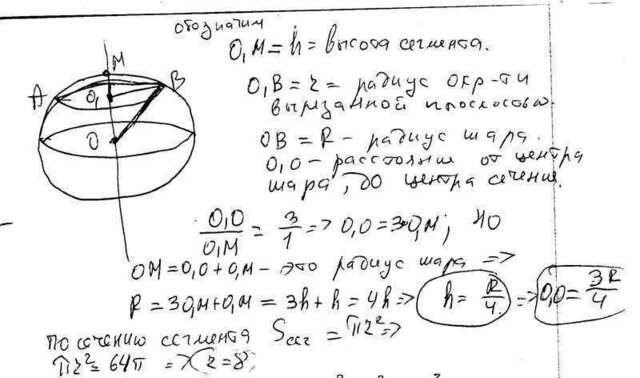 обозначим
O₁M = h = высота сегмента.
M
A
B
O₁
O
O₁B = r = радиус окр-ти
вырезанной плоскостью.
OB = R – радиус шара.
O₁O – расстояние от центра
шара, до центра сечения.
O₁O/O₁M = 3/1 => O₁O = 3O₁M; но
OM = O₁O + O₁M – это радиус шара =>
R = 3O₁M + O₁M = 3h + h = 4h => h = R/4 => O₁O = 3R/4
по сечению сегмента Sсег = πr² =>
πr² = 64π => r = 8;